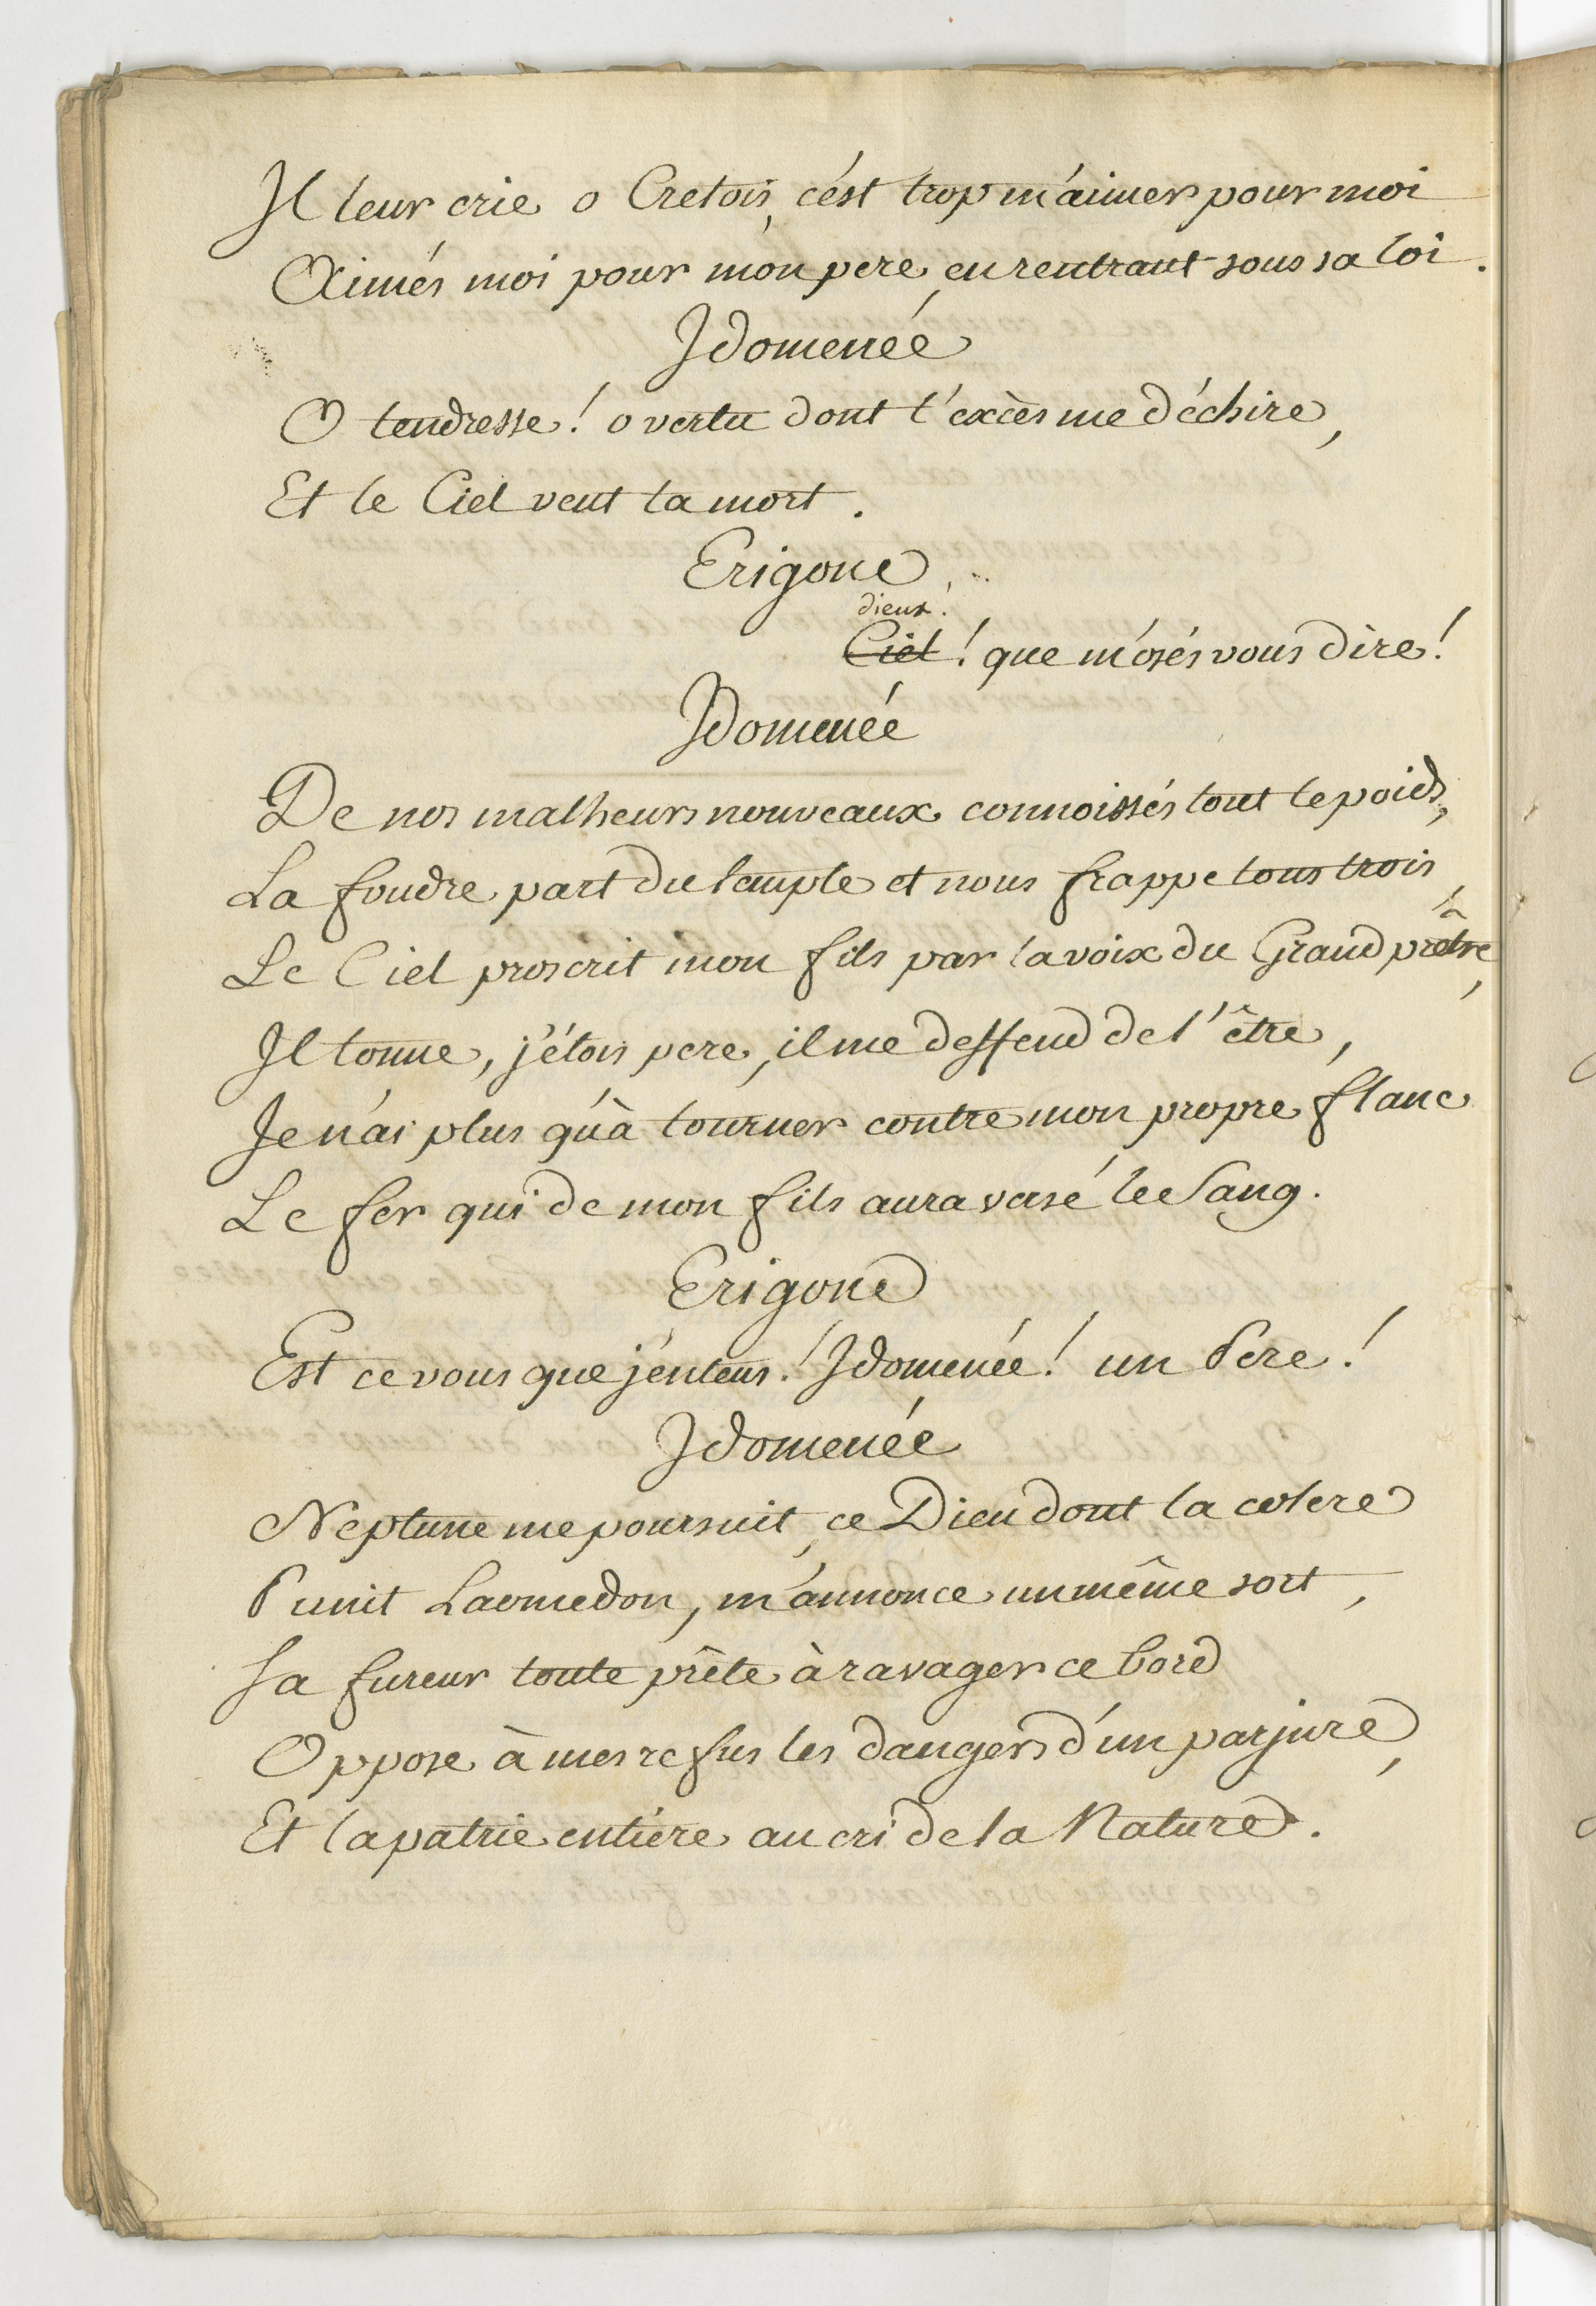 Il leur crie o Cretois, c'ést trop m'aimer pour moi
Aimés moi pour mon pere en rentrant sous sa loi.
Idomenée
O tendresse! o vertu dont l'excès me déchire,
Et le Ciel veut sa mort.
Erigone
dieux!
Ciel! que m'osés vous dire!
Idomenée
De nos malheurs nouveaux connoissés tout le poids,
La foudre part du temple et nous frappe tous trois,
Le Ciel proscrit mon fils par la voix du Grand prêtre,
Il tonne, j'étois pere, il me deffend de l'être,
Je n'ai plus qu'à tourner contre mon propre flanc
Le fer qui de mon fils aura versé le Sang.
Erigone
Est ce vous que j'entens! Idomenée! un Pere!
Idomenée
Neptune me poursuit, ce Dieu dont la colere
Punit Laomedon, m'annonce un même sort,
Sa fureur toute prête à ravager ce bord
Oppose à mes refus les dangers d'un parjure,
Et la patrie entiére au cri de la Nature.